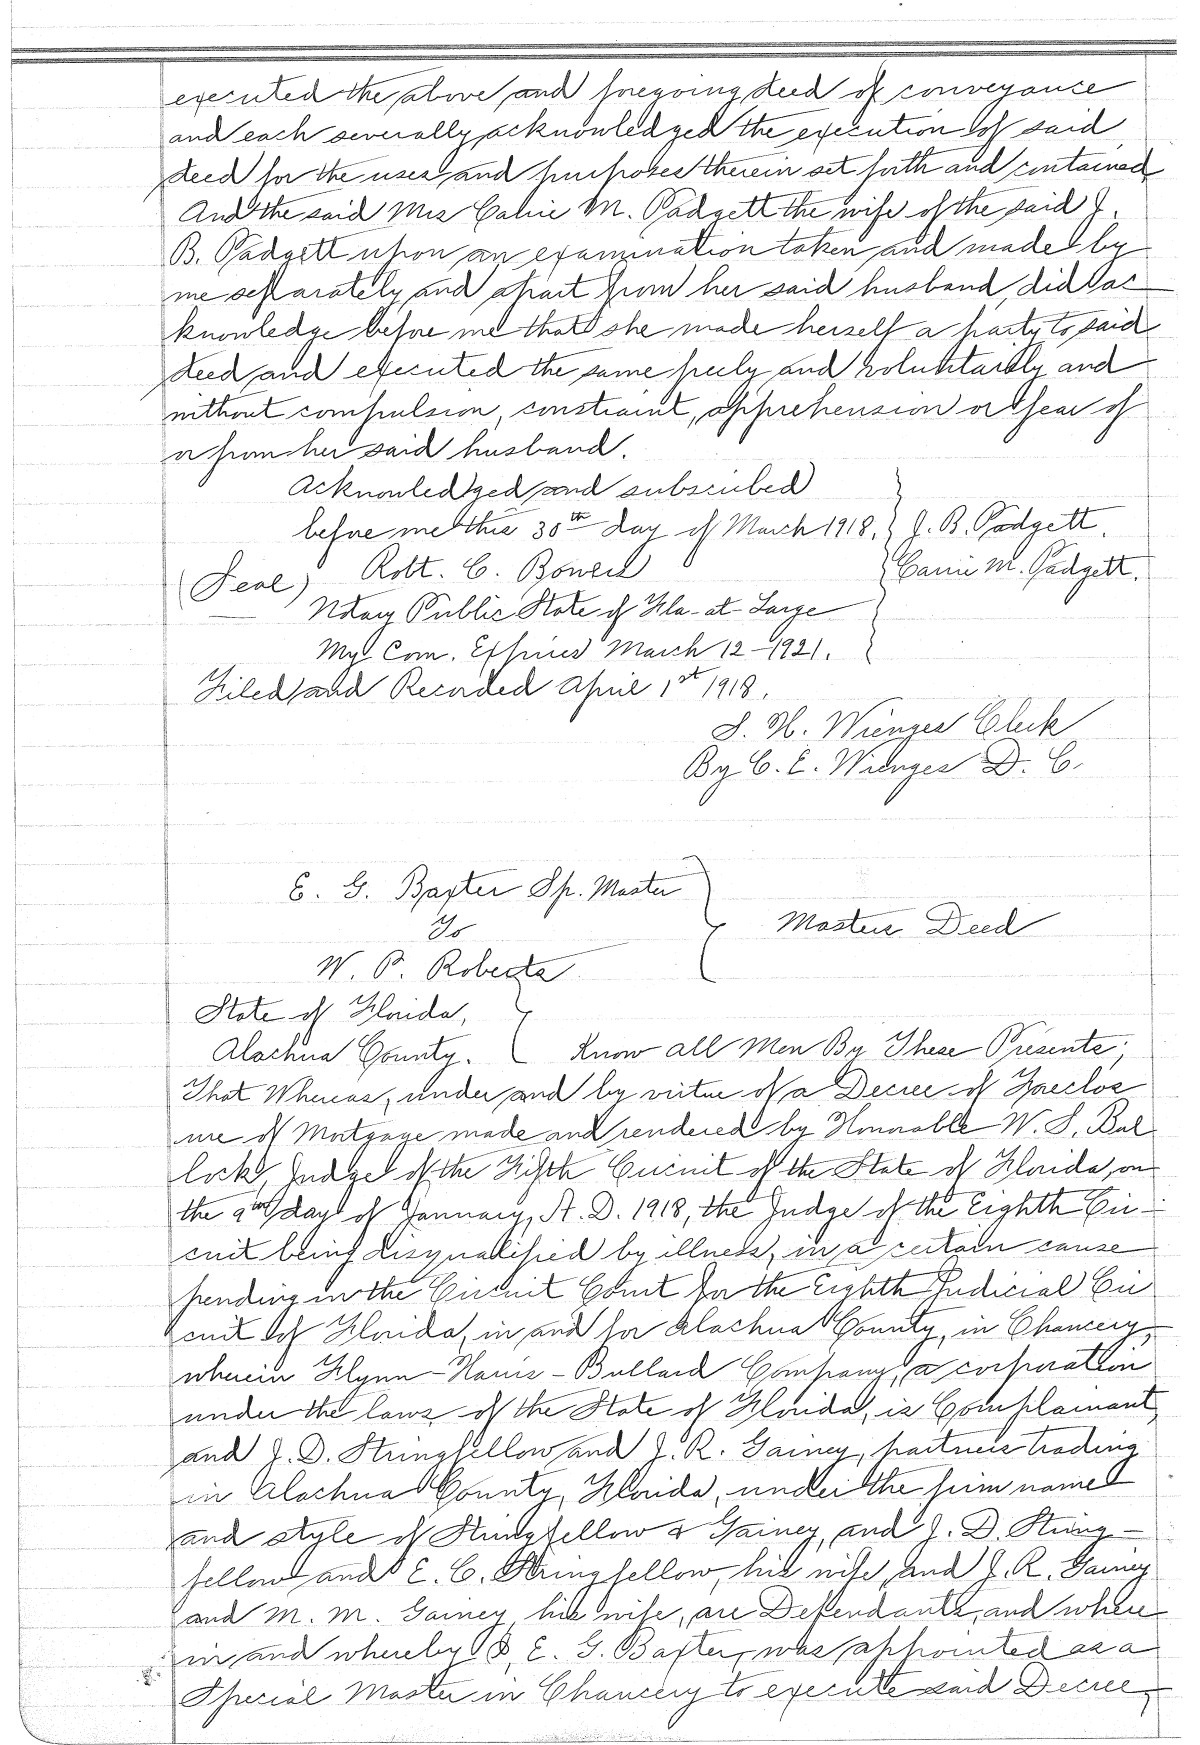 executed the above and foregoing deed of conveyance
and each severally acknowledged the execution of said
deed for the uses and purposes therein set forth and contained
And the said Mrs Carrie M. Padgett the wife of the said J.
B. Padgett upon an examination taken and made by
me separately and apart from her said husband, did ac
knowledge before me that she made herself a party to said
deed and executed the same freely and voluntarily and
without compulsion, constraint, apprehension or fear of
or from her said husband.
Acknowledged and subscribed
before me this 30th day of March 1918. J. B. Padgett.
(Seal) Robt. C. Bowers Carrie M. Padgett.
Notary Public State of Fla-at-Large
My Com. Expires March 12-1921.
Filed and Recorded April 1st 1918.
S. H. Wienges Clerk
By C. E. Wienges D. C.
E. G. Baxter Sp. Master
To Masters Deed
W. P. Roberts
State of Florida,
Alachua County. Know all Men By These Presents;
That Whereas, under and by virtue of a Decree of Foreclos
ure of Mortgage made and rendered by Honorable W. S. Bul
lock, Judge of the Fifth Circuit of the State of Florida, on
the 9th day of January, A. D. 1918, the Judge of the Eighth Cir-
cuit being disqualified by illness, in a certain cause
pending in the Circuit Court for the Eighth Judicial Cir
cuit of Florida, in and for Alachua County, in Chancery,
wherein Flynn-Harris-Bullard Company, a corporation
under the laws of the State of Florida, is Complainant,
and J. D. Stringfellow and J. R. Gainey, partners trading
in Alachua County, Florida, under the firm name
and style of Stringfellow & Gainey, and J. D. String-
fellow and E. C. Stringfellow, his wife, and J. R. Gainey
and M. M. Gainey, his wife, are Defendants, and where
in and whereby I, E. G. Baxter, was appointed as a
Special Master in Chancery to execute said Decree,